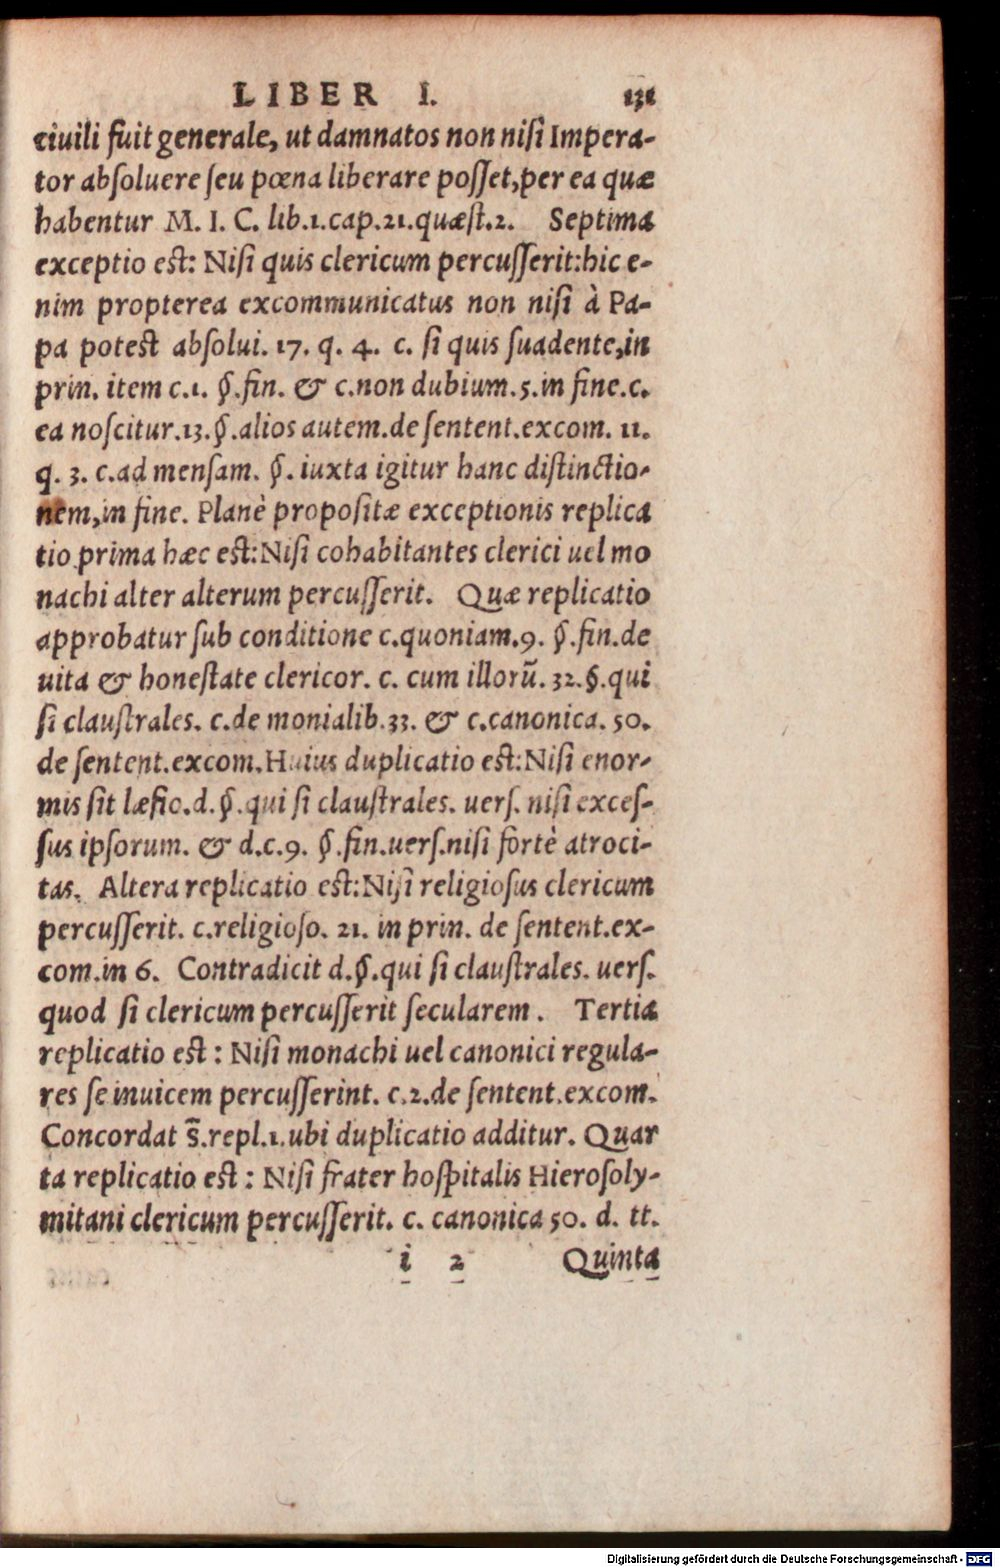 LIBER I. 131
ciuili fuit generale, ut damnatos non niſi Impera-
tor abſoluere ſeu pœna liberare poſſet, per ea quæ
habentur M. I. C. lib.1.cap.21.quæſt.2. Septima
exceptio eſt: Niſi quis clericum percuſſerit: hic e-
nim propterea excommunicatus non niſi à Pa-
pa poteſt abſolui. 17. q. 4. c. ſi quis ſuadente, in
prin. item c.1. §.fin. & c.non dubium.5.in fine.c.
ea noſcitur.13.§.alios autem.de ſentent.excom. 11.
q. 3. c.ad menſam. §. iuxta igitur hanc diſtinctio-
nem, in fine. Planè propoſitæ exceptionis replica
tio prima hæc eſt: Niſi cohabitantes clerici uel mo
nachi alter alterum percuſſerit. Quæ replicatio
approbatur ſub conditione c.quoniam.9. §.fin.de
uita & honeſtate clericor. c. cum illorū. 32.§.qui
ſi clauſtrales. c.de monialib.33. & c.canonica. 50.
de ſentent.excom. Huius duplicatio eſt: Niſi enor-
mis ſit læſio.d.§.qui ſi clauſtrales. uerſ. niſi exceſ-
ſus ipſorum. & d.c.9. §.fin.uerſ.niſi fortè atroci-
tas. Altera replicatio eſt: Niſi religioſus clericum
percuſſerit. c.religioſo. 21. in prin. de ſentent.ex-
com.in 6. Contradicit d.§.qui ſi clauſtrales. uerſ.
quod ſi clericum percuſſerit ſecularem. Tertia
replicatio eſt: Niſi monachi uel canonici regula-
res ſe inuicem percuſſerint. c.2.de ſentent.excom.
Concordat s̄.repl.1.ubi duplicatio additur. Quar
ta replicatio eſt: Niſi frater hoſpitalis Hieroſoly-
mitani clericum percuſſerit. c. canonica 50. d. tt.
i 2 Quinta
Digitalisierung gefördert durch die Deutsche Forschungsgemeinschaft - DFG